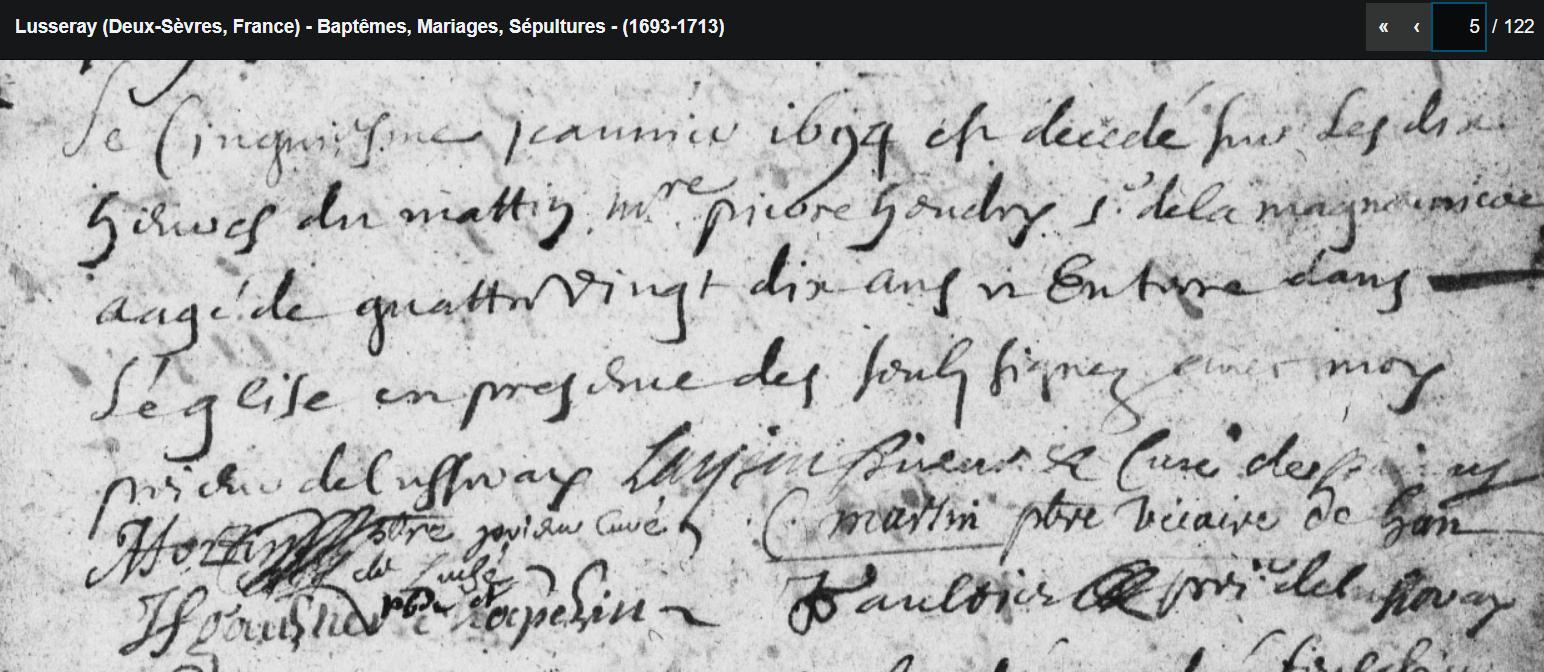 Lusseray (Deux-Sèvres, France) - Baptêmes, Mariages, Sépultures - (1693-1713)
« ‹ 5 / 122
Le Cinquiesme jeanvier 1694 est decedé sur les dix
heures du mattin mre pierre hendry sr de la
aagé de quattre vingt dix ans et Enterre dans
L'église en presence des soubsignez avec moy
prieur de lusseray prieur & Curé de
ptre prieur Curé martin ptre viccaire de
de chapelin prieur de lusseray